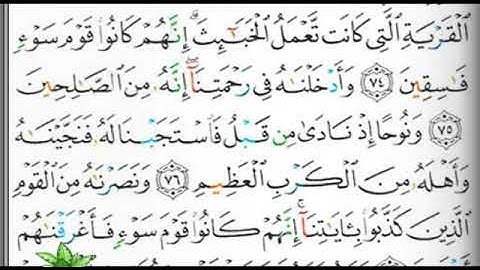 ٱلۡقَرۡيَةِ ٱلَّتِي كَانَت تَّعۡمَلُ ٱلۡخَبَٰٓئِثَۚ إِنَّهُمۡ كَانُوا۟ قَوۡمَ سَوۡءٖ
فَٰسِقِينَ ٧٤ وَأَدۡخَلۡنَٰهُ فِي رَحۡمَتِنَآۖ إِنَّهُۥ مِنَ ٱلصَّٰلِحِينَ
٧٥ وَنُوحًا إِذۡ نَادَىٰ مِن قَبۡلُ فَٱسۡتَجَبۡنَا لَهُۥ فَنَجَّيۡنَٰهُ
وَأَهۡلَهُۥ مِنَ ٱلۡكَرۡبِ ٱلۡعَظِيمِ ٧٦ وَنَصَرۡنَٰهُ مِنَ ٱلۡقَوۡمِ
ٱلَّذِينَ كَذَّبُوا۟ بِـَٔايَٰتِنَآۚ إِنَّهُمۡ كَانُوا۟ قَوۡمَ سَوۡءٖ فَأَغۡرَقۡنَٰهُمۡ